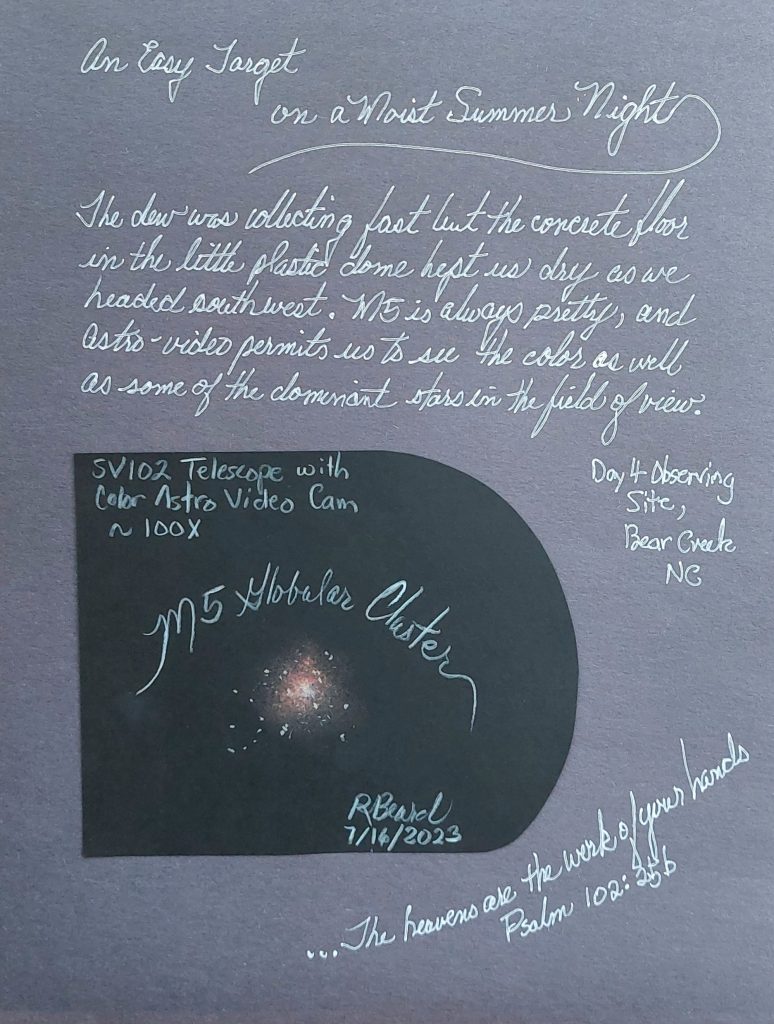 An Easy Target
on a Moist Summer Night
The dew was collecting fast but the concrete floor
in the little plastic dome kept us dry as we
headed southwest. M5 is always pretty, and
astro-video permits us to see the color as well
as some of the dominant stars in the field of view.
SV102 Telescope with
Color Astro Video Cam
~ 100X
Day 4 Observing
Site,
Bear Creek
NC
M5 Globular Cluster
RBeard
7/16/2023
...The heavens are the work of your hands
Psalm 102:25b